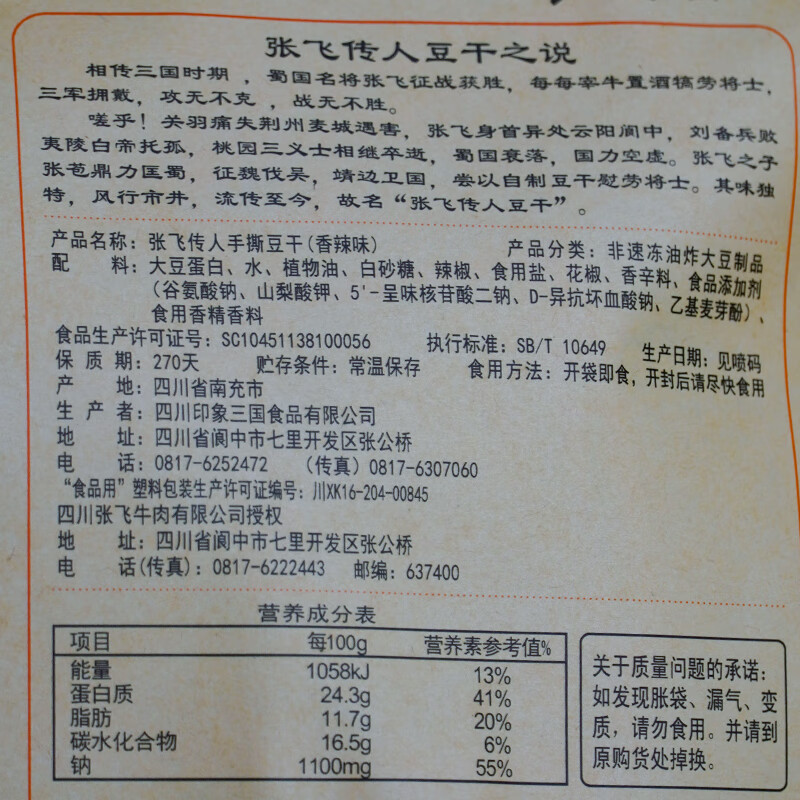 张飞传人豆干之说
相传三国时期，蜀国名将张飞征战获胜，每每宰牛置酒犒劳将士，
三军拥戴，攻无不克，战无不胜。
嗟乎！关羽痛失荆州麦城遇害，张飞身首异处云阳阆中，刘备兵败
夷陵白帝托孤，桃园三义士相继卒逝，蜀国衰落，国力空虚。张飞之子
张苞鼎力匡蜀，征魏伐吴，靖边卫国，尝以自制豆干慰劳将士。其味独
特，风行市井，流传至今，故名“张飞传人豆干”。
产品名称：张飞传人手撕豆干(香辣味) 产品分类：非速冻油炸大豆制品
配 料：大豆蛋白、水、植物油、白砂糖、辣椒、食用盐、花椒、香辛料、食品添加剂
(谷氨酸钠、山梨酸钾、5'-呈味核苷酸二钠、D-异抗坏血酸钠、乙基麦芽酚)、
食用香精香料
食品生产许可证号：SC10451138100056 执行标准：SB/T 10649 生产日期：见喷码
保 质 期：270天 贮存条件：常温保存 食用方法：开袋即食，开封后请尽快食用
产 地：四川省南充市
生 产 者：四川印象三国食品有限公司
地 址：四川省阆中市七里开发区张公桥
电 话：0817-6252472 （传真）0817-6307060
“食品用”塑料包装生产许可证编号：川XK16-204-00845
四川张飞牛肉有限公司授权
地 址：四川省阆中市七里开发区张公桥
电 话(传真)：0817-6222443 邮编：637400
营养成分表
项目 每100g 营养素参考值%
能量 1058kJ 13%
蛋白质 24.3g 41%
脂肪 11.7g 20%
碳水化合物 16.5g 6%
钠 1100mg 55%
关于质量问题的承诺：
如发现胀袋、漏气、变
质，请勿食用。并请到
原购货处掉换。